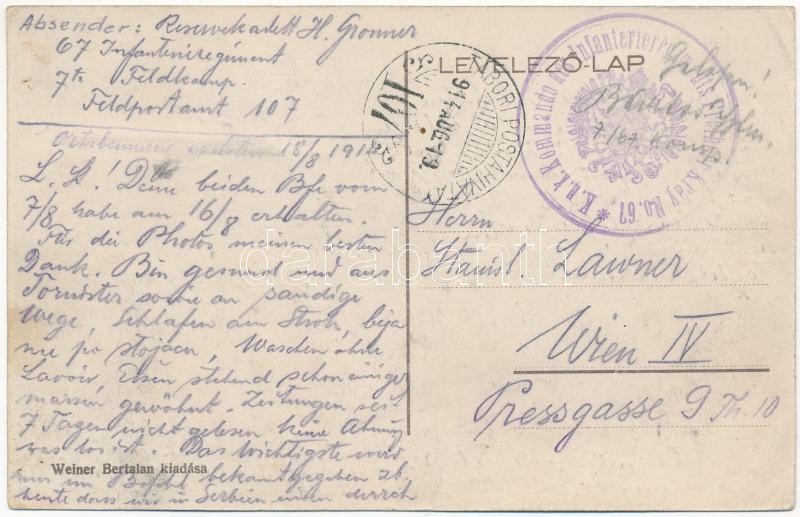 Absender: Reservekadett H. Gronner
67 Infanterieregiment
7te Feldkomp.
Feldpostamt 107
Ortsbenennung verboten 18/8 1914
L. St! Deine beiden Bfe vom
7/8 habe am 16/8 erhalten.
Für die Photos meinen besten
Dank. Bin gesund und aus
Tornister sowie an sandige
Wege, Schlafen am Stroh,
Waschen ohne
Lavoir, Essen stehend schon einiger
massen gewöhnt. Zeitungen seit
7 Tagen nicht gelesen keine Ahnung
was los ist. Das wichtigste wird
uns im Befehl bekanntgegeben zb.
heute dass wir in Serbien einen
Weiner Bertalan kiadása
LEVELEZŐ-LAP
TÁBORI POSTAHIVATAL
914 AUG. 19.
107
K.u.k. Kommando des Infanterieregiments Freiherr Kray No. 67
Gelesen!
7./67. Komp.
Herrn
Stanisl. Lawner
Wien IV
Pressgasse 9 Th. 10
darabanth